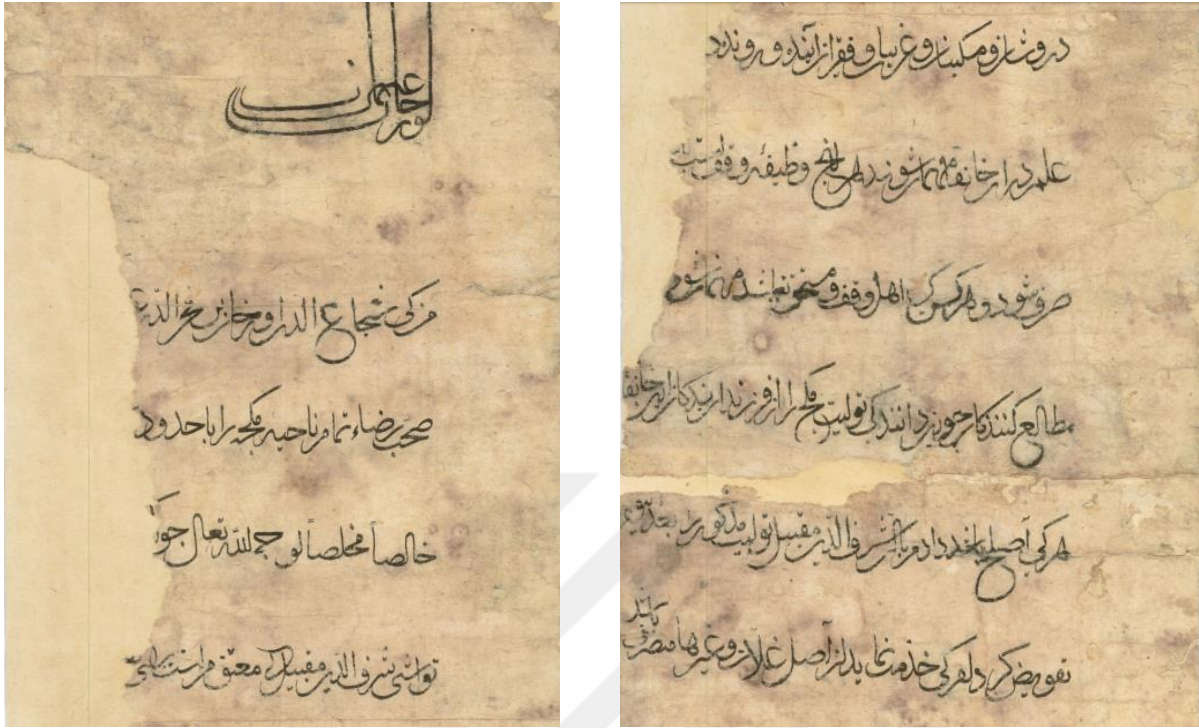 اورخان بن عثمان
من کی شجاع الدین اورخان بن فخر الدین
صحت رضاء تمام ناحیه مکجه را با حدود
خالصاً مخلصاً لوجه الله تعالی
تواشی شرف الدین مقبل کی معتق من است
درویشان و مسکینان و غریبان و فقیران از آینده و رونده
علم در آن خانقه مهمان شوند هم بر آن نهج وظیفه وقف
صرف شود و هر کس کی اهل وقف و مستحق نباشد مهمان نشود
مطالعه کنندگان چون بدانند کی تولیت مکجه را از فرزندان بندگان این خانقاه
هر کی اصلح باشد دادم باز شرف الدین مقبل تولیت مذکور را بعده
تفویض کردم کی خدمت نماید از اصل غلات و غیرها متصرف باشد